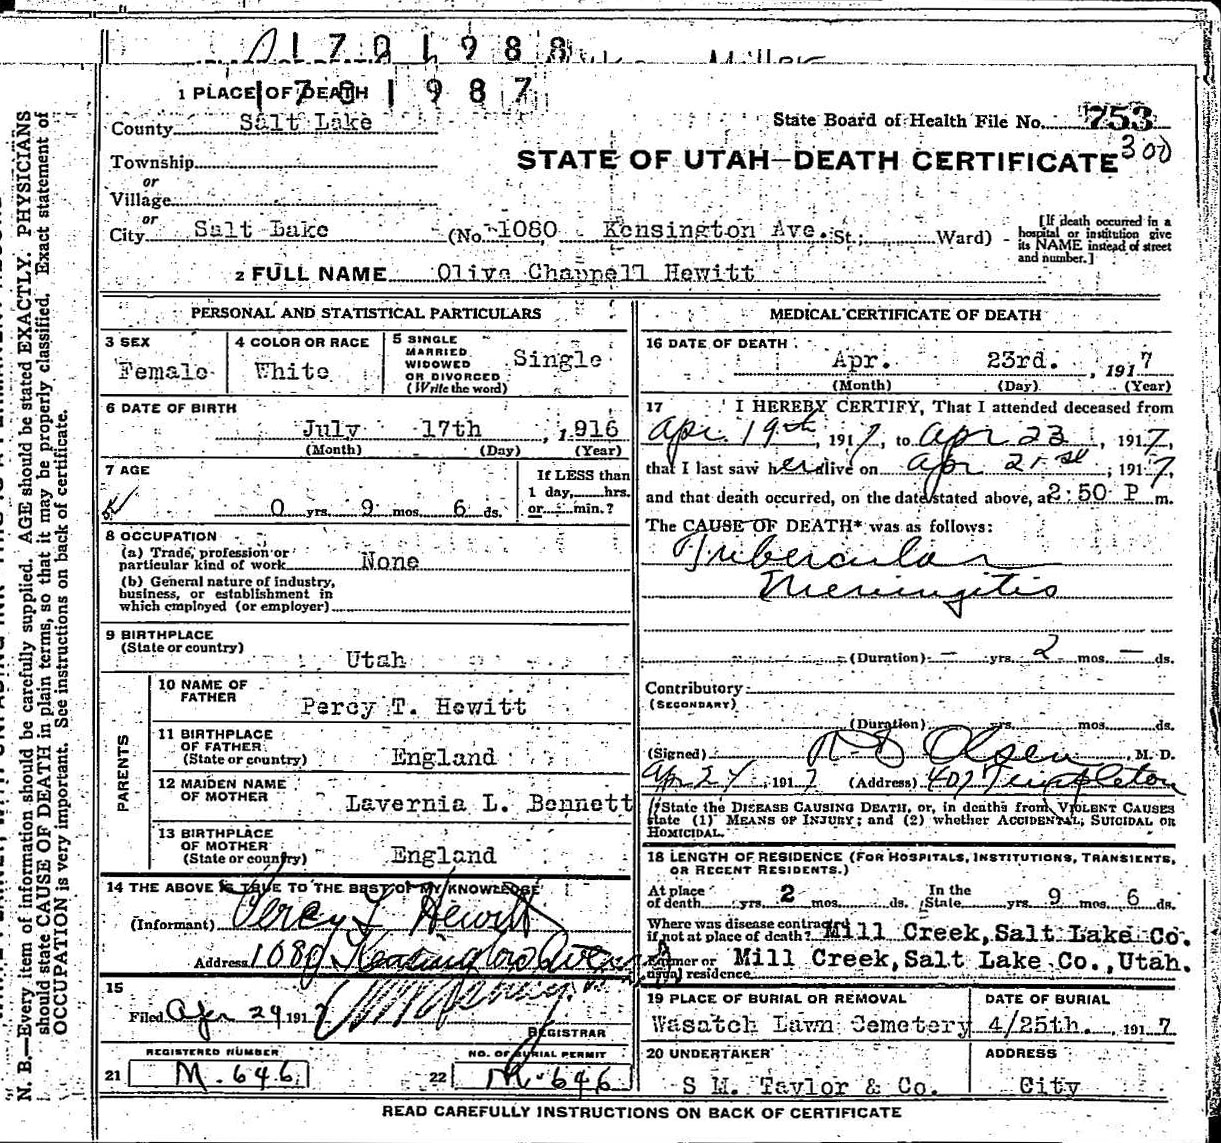 1701988
1 PLACE OF DEATH 1701987
County Salt Lake
State Board of Health File No. 753
Township
STATE OF UTAH—DEATH CERTIFICATE 300
or
Village
or
City Salt Lake (No. 1080 Kensington Ave. St.; Ward)
[If death occurred in a
hospital or institution give
its NAME instead of street
and number.]
2 FULL NAME Olive Chappell Hewitt
PERSONAL AND STATISTICAL PARTICULARS
3 SEX
Female
4 COLOR OR RACE
White
5 SINGLE
MARRIED
WIDOWED
OR DIVORCED
(Write the word)
Single
6 DATE OF BIRTH
July 17th, 1916
(Month) (Day) (Year)
7 AGE
0 yrs. 9 mos. 6 ds.
If LESS than
1 day, hrs.
or min.?
8 OCCUPATION
(a) Trade, profession or
particular kind of work None
(b) General nature of industry,
business, or establishment in
which employed (or employer)
9 BIRTHPLACE
(State or country)
Utah
PARENTS
10 NAME OF
FATHER
Percy T. Hewitt
11 BIRTHPLACE
OF FATHER
(State or country) England
12 MAIDEN NAME
OF MOTHER
Lavernia L. Bennett
13 BIRTHPLACE
OF MOTHER
(State or country) England
14 THE ABOVE IS TRUE TO THE BEST OF MY KNOWLEDGE
(Informant) Percy T Hewitt
Address 1080 Kensington Avenue
15
Filed Apr 29 1917
REGISTRAR
REGISTERED NUMBER
21 M-646
NO. OF BURIAL PERMIT
22 M-646
MEDICAL CERTIFICATE OF DEATH
16 DATE OF DEATH
Apr. 23rd. , 1917
(Month) (Day) (Year)
17 I HEREBY CERTIFY, That I attended deceased from
Apr. 19th, 1917, to Apr 23, 1917,
that I last saw her alive on Apr 21st, 1917,
and that death occurred, on the date stated above, at 2:50 P m.
The CAUSE OF DEATH* was as follows:
Tubercular
Meningitis
(Duration) — yrs. 2 mos. — ds.
Contributory
(SECONDARY)
(Duration) yrs. mos. ds.
(Signed) Olsen, M. D.
Apr 24, 1917 (Address) 407 Templeton
*State the DISEASE CAUSING DEATH, or, in deaths from VIOLENT CAUSES
state (1) MEANS OF INJURY; and (2) whether ACCIDENTAL, SUICIDAL OR
HOMICIDAL.
18 LENGTH OF RESIDENCE (FOR HOSPITALS, INSTITUTIONS, TRANSIENTS,
OR RECENT RESIDENTS.)
At place
of death yrs. 2 mos. ds.
In the
State yrs. 9 mos. 6 ds.
Where was disease contracted
if not at place of death? Mill Creek, Salt Lake Co.
Former or
usual residence Mill Creek, Salt Lake Co., Utah.
19 PLACE OF BURIAL OR REMOVAL
Wasatch Lawn Cemetery
DATE OF BURIAL
4/25th. , 1917
20 UNDERTAKER
S M. Taylor & Co.
ADDRESS
City
READ CAREFULLY INSTRUCTIONS ON BACK OF CERTIFICATE
N. B.—Every item of information should be carefully supplied. AGE should be stated EXACTLY. PHYSICIANS
should state CAUSE OF DEATH in plain terms, so that it may be properly classified. Exact statement of
OCCUPATION is very important. See instructions on back of certificate.